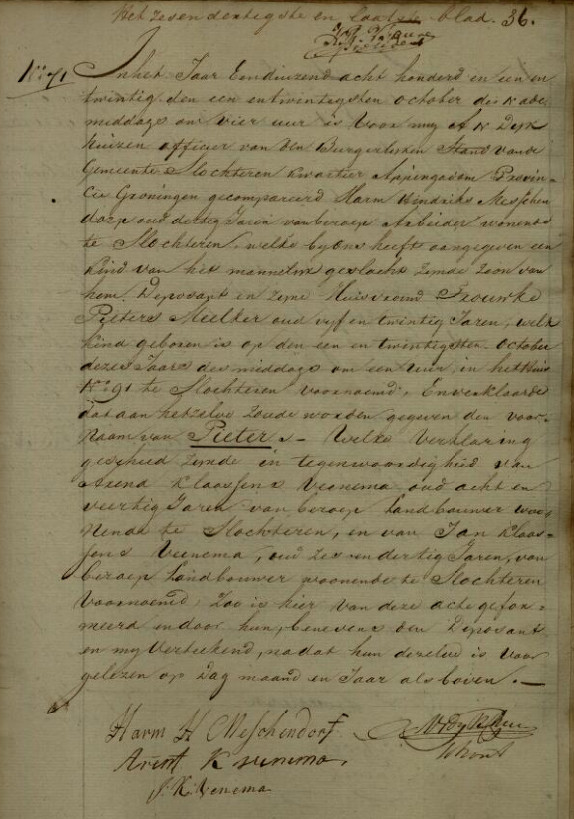 Het zesendertigste en laatste blad. 36.
No. 71
In het Jaar Eenduizend acht honderd en een en
twintig den een entwintigsten october des namid
middags om vier uur is voor my A K Dyk
huizen officier van den Burgerlyken Stand van de
Gemeente Slochteren kwartier Appingadam Provin-
cie Groningen gecompareerd Harm Hindriks Messchen
dorp oud dertig Jaren van beroep Arbeider wonende
te Slochteren, welke by ons heeft aangegeven een
kind van het mannelyk geslacht zynde zoon van
hem Deposant en zyne Huisvrouw Frouwke
Pieters Mulder oud vyf en twintig Jaren, welk
kind geboren is op den een en twintigsten october
dezes Jaars des middags om een uur, in het Huis
No. 91 te Slochteren voornoemd, En verklaarde
dat aan hetzelve zoude worden gegeven den voor-
Naam van Pieter. – Welke Verklaring
geschied zynde in tegenwoordigheid van
Arend Klaassens Veenema oud acht en
veertig Jaren van beroep Landbouwer woo-
nende te Slochteren, en van Jan Klaas-
sens Veenema, oud zes en dertig Jaren, van
beroep Landbouwer woonende te Slochteren
voornoemd, Zoo is hier van deze acte gefor-
meerd en door hun, benevens den Deposant
en my Verteekend, nadat hun dezelve is voor
gelezen op Dag maand en Jaar als boven. —
Harm H Messchendorf
Arent K venema.
J. K. Venema